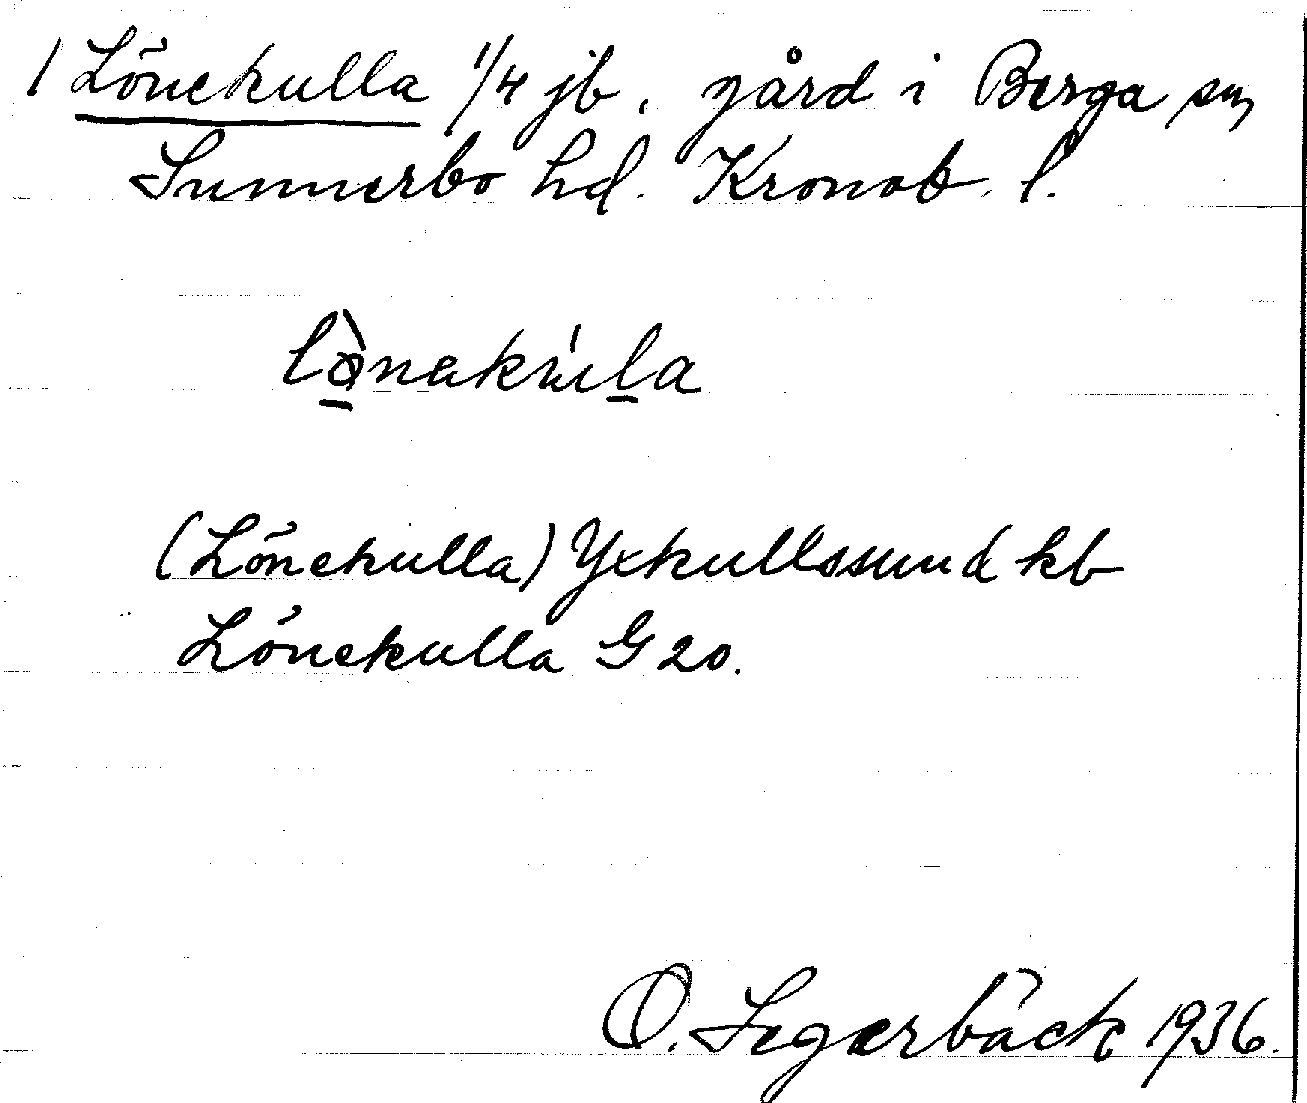 1 Lönekulla 1/4 jb. gård i Berga sn,
Sunnerbo hd. Kronob. l.
lø̀nakúla
(Lönekulla) Yxkullssund kb
Lönekulla G 20.
O. Segerbäck 1936.